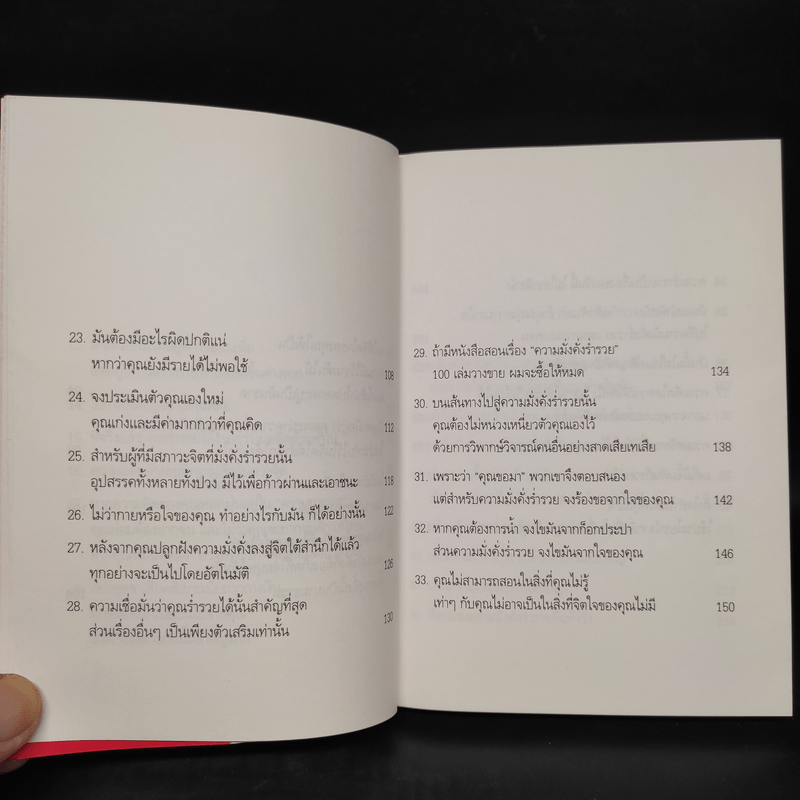 23. มันต้องมีอะไรผิดปกติแน่
หากว่าคุณยังมีรายได้ไม่พอใช้ 108
24. จงประเมินตัวคุณเองใหม่
คุณเก่งและมีค่ามากกว่าที่คุณคิด 112
25. สำหรับผู้ที่มีสภาวะจิตที่มั่งคั่งร่ำรวยนั้น
อุปสรรคทั้งหลายทั้งปวง มีไว้เพื่อก้าวผ่านและเอาชนะ 118
26. ไม่ว่ากายหรือใจของคุณ ทำอย่างไรกับมัน ก็ได้อย่างนั้น 122
27. หลังจากคุณปลูกฝังความมั่งคั่งลงสู่จิตใต้สำนึกได้แล้ว
ทุกอย่างจะเป็นไปโดยอัตโนมัติ 126
28. ความเชื่อมั่นว่าคุณร่ำรวยได้นั้นสำคัญที่สุด
ส่วนเรื่องอื่นๆ เป็นเพียงตัวเสริมเท่านั้น 130
29. ถ้ามีหนังสือสอนเรื่อง “ความมั่งคั่งร่ำรวย”
100 เล่มวางขาย ผมจะซื้อให้หมด 134
30. บนเส้นทางไปสู่ความมั่งคั่งร่ำรวยนั้น
คุณต้องไม่หน่วงเหนี่ยวตัวคุณเองไว้
ด้วยการวิพากษ์วิจารณ์คนอื่นอย่างสาดเสียเทเสีย 138
31. เพราะว่า “คุณขอมา” พวกเขาจึงตอบสนอง
แต่สำหรับความมั่งคั่งร่ำรวย จงร้องขอจากใจของคุณ 142
32. หากคุณต้องการน้ำ จงไขมันจากก็อกประปา
ส่วนความมั่งคั่งร่ำรวย จงไขมันจากใจของคุณ 146
33. คุณไม่สามารถสอนในสิ่งที่คุณไม่รู้
เท่าๆ กับคุณไม่อาจเป็นในสิ่งที่จิตใจของคุณไม่มี 150